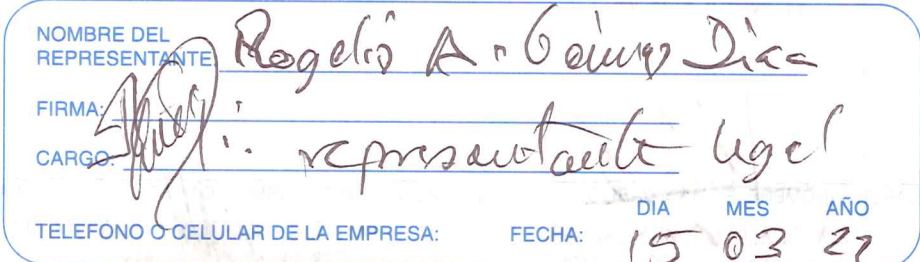 NOMBRE DEL
REPRESENTANTE: Rogelio A. Gómez Diaz
FIRMA:
CARGO: representante legal
DIA MES AÑO
TELEFONO O CELULAR DE LA EMPRESA: FECHA: 15 03 22